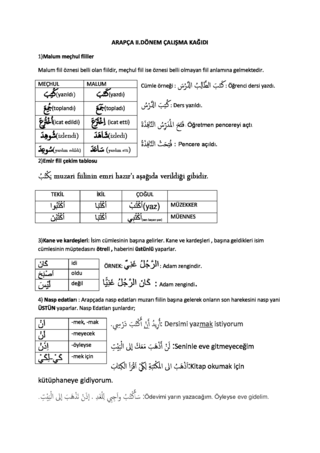 ARAPÇA II.DÖNEM ÇALIŞMA KAĞIDI
1)Malum meçhul fiiller
Malum fiil öznesi belli olan fiildir, meçhul fiil ise öznesi belli olmayan fiil anlamına gelmektedir.
MEÇHUL MALUM
كُتِبَ(yazıldı) كَتَبَ(yazdı)
جُمِعَ(toplandı) جَمَعَ(topladı)
أُخْتُرِعَ(icat edildi) إِخْتَرَعَ(icat etti)
شُوهِدَ(izlendi) شَاهَدَ(izledi)
سُوعِدَ(yardım edildi) سَاعَدَ(yardım etti)
Cümle örneği : كَتَبَ الطَّالِبُ الدَّرْسَ Öğrenci dersi yazdı.
كُتِبَ الدَّرْسُ Ders yazıldı.
فَتَحَ الْمُدَرِّسُ النَّافِذَةَ Öğretmen pencereyi açtı
فُتِحَتْ النَّافِذَةُ : Pencere açıldı.
2)Emir fiil çekim tablosu
يَكْتُبُ muzari fiilinin emri hazır'ı aşağıda verildiği gibidir.
TEKİL İKİL ÇOĞUL
اُكْتُبُوا اُكْتُبَا اُكْتُبْ(yaz) MÜZEKKER
اُكْتُبْنَ اُكْتُبَا اُكْتُبِي MÜENNES
3)Kane ve kardeşleri: İsim cümlesinin başına gelirler. Kane ve kardeşleri , başına geldikleri isim
cümlesinin müptedasını ötreli , haberini üstünlü yaparlar.
كَانَ idi
أَصْبَحَ oldu
لَيْسَ değil
ÖRNEK: الرَّجُلُ غَنِيٌّ : Adam zengindir.
كَانَ الرَّجُلُ غَنِيًّا : Adam zengindi.
4) Nasp edatları : Arapçada nasp edatları muzari fiilin başına gelerek onların son harekesini nasp yani
ÜSTÜN yaparlar. Nasp Edatları şunlardır;
أَنْ -mek, -mak
لَنْ -meyecek
إِذَنْ -öyleyse
كَيْ-لِكَيْ -mek için
أُرِيدُ أَنْ أَكْتُبَ دَرْسِي. Dersimi yazmak istiyorum
لَنْ أَذْهَبَ مَعَكَ إِلَى الْبَيْتِ :Seninle eve gitmeyeceğim
أَذْهَبُ الى الْمَكْتَبَةِ لِكَيْ أَقْرَأَ الْكِتَابَ:Kitap okumak için
kütüphaneye gidiyorum.
سَأَكْتُبُ وَاجِبِي لِلْغَدِ . إِذَنْ نَذْهَبَ إِلَى الْبَيْتِ. :Ödevimi yarın yazacağım. Öyleyse eve gidelim.